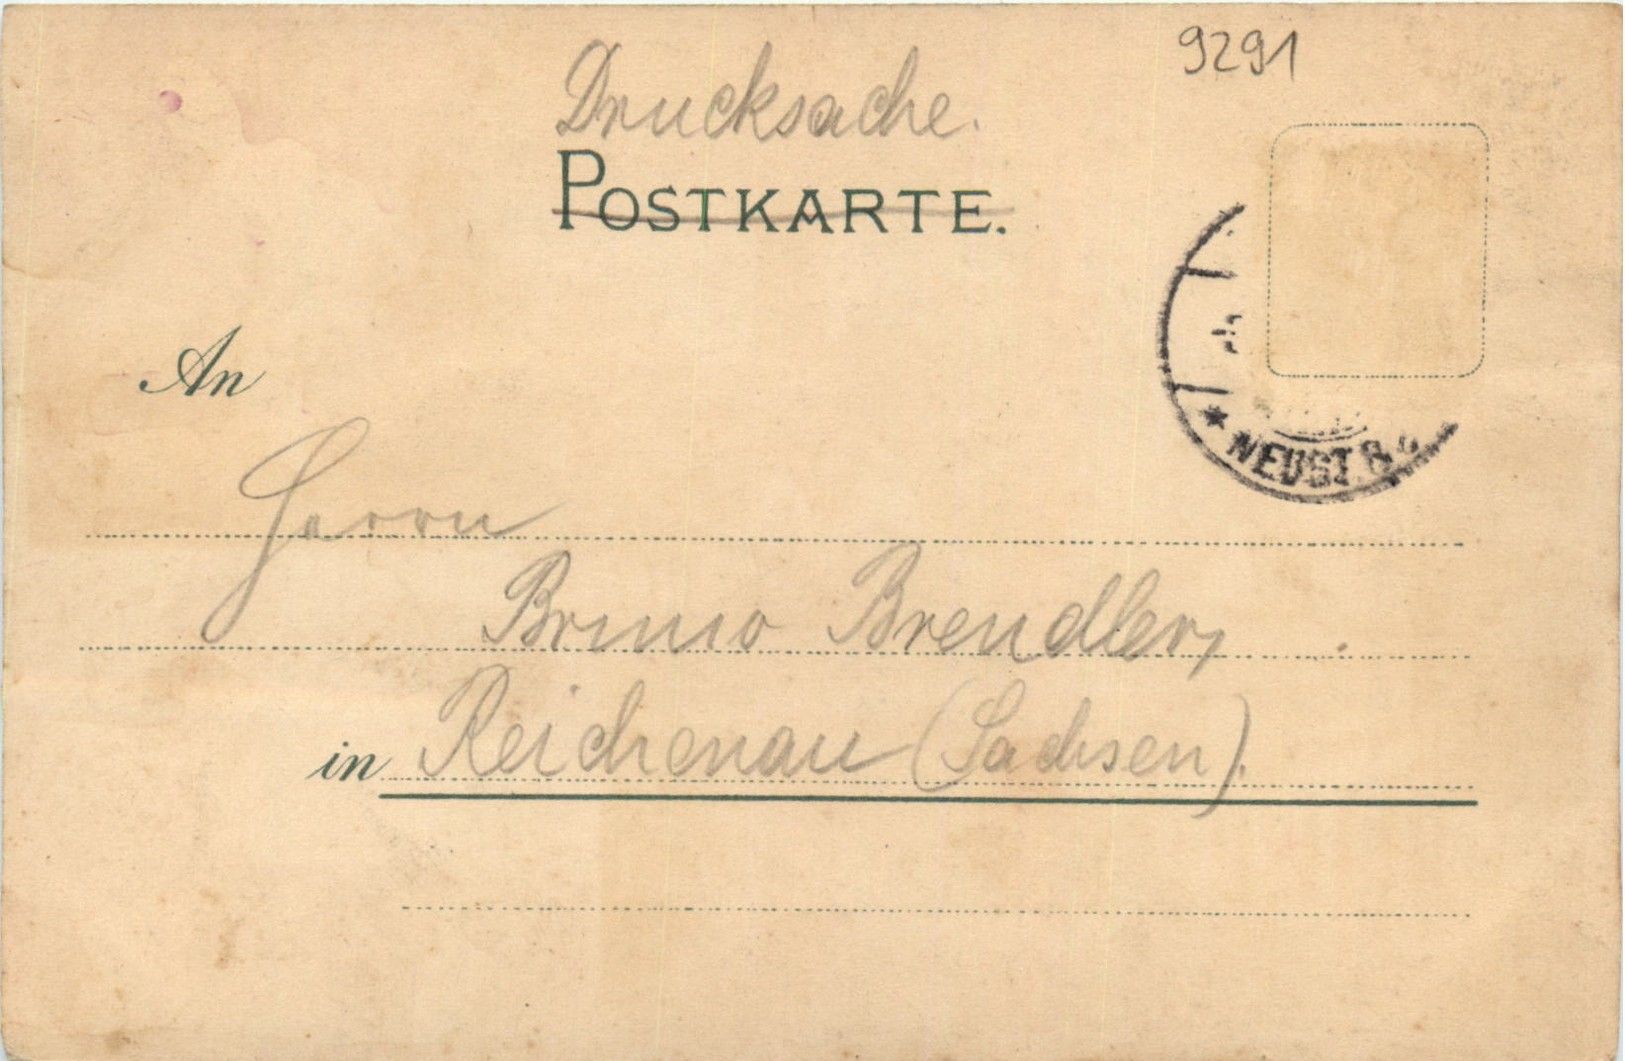 9291
Drucksache.
POSTKARTE.
An
* NEUST.
Herrn
Bruno Brendler,
in Reichenau (Sachsen).